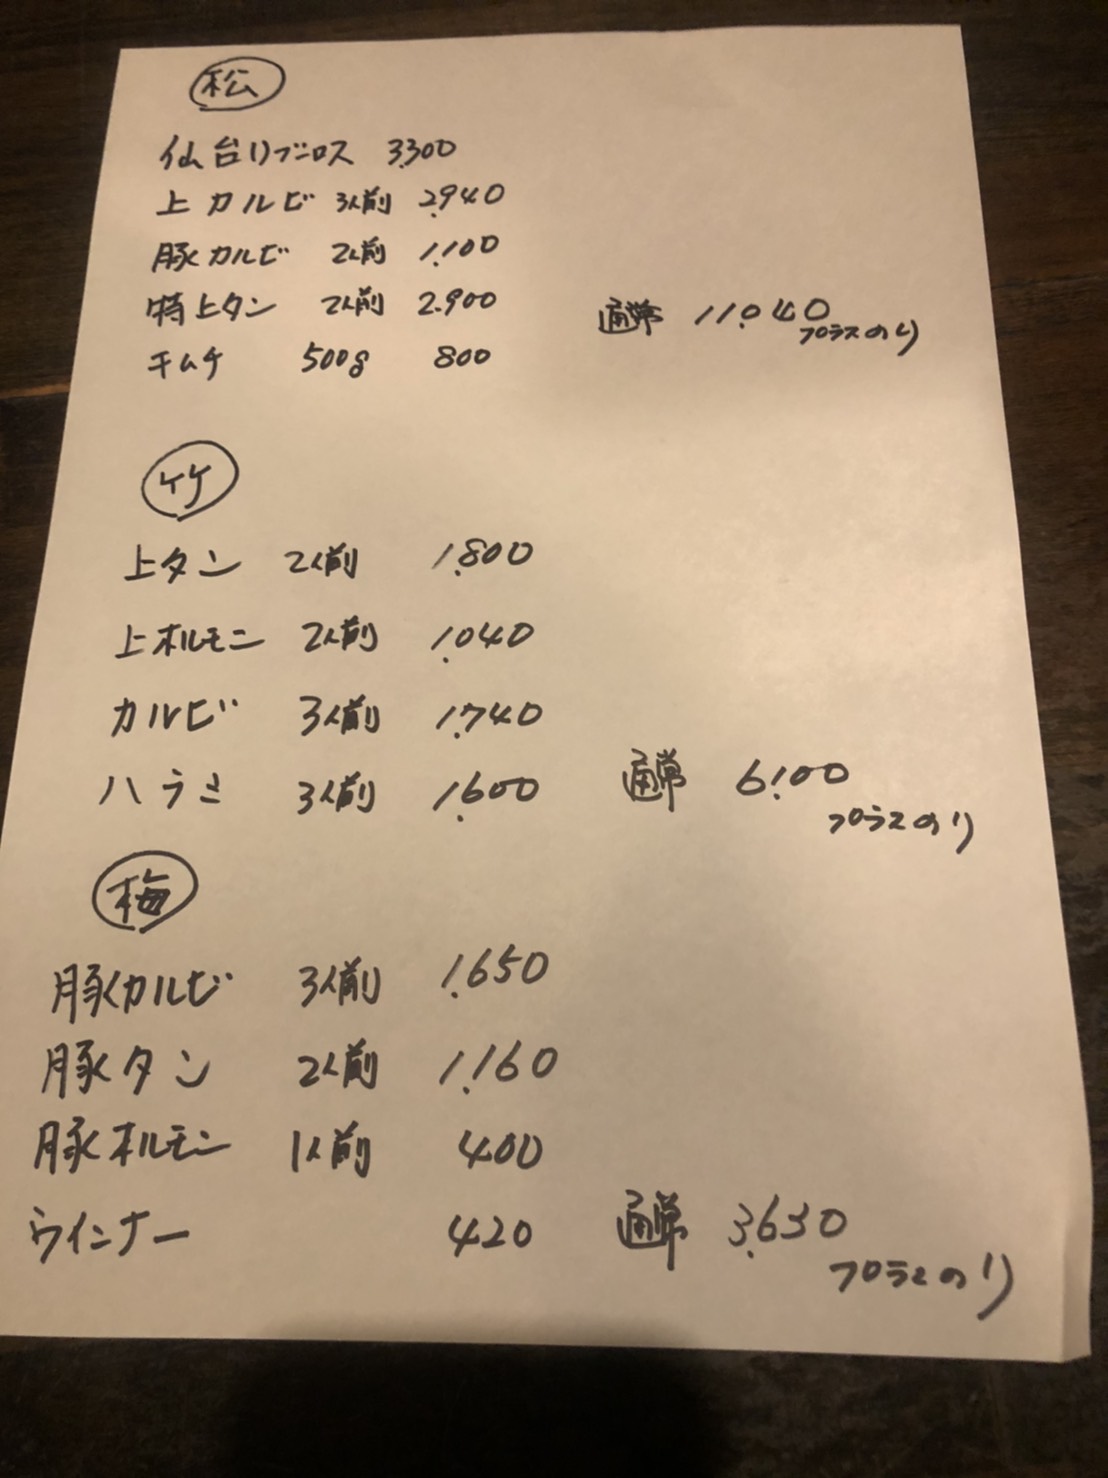 松
仙台リブロース 3.300
上カルビ 3人前 2.940
豚カルビ 2人前 1.100
特上タン 2人前 2.900
キムチ 500g 800
通常 11.040
プラスのり
竹
上タン 2人前 1.800
上ホルモン 2人前 1.040
カルビ 3人前 1.740
ハラミ 3人前 1.600
通常 6.100
プラスのり
梅
豚カルビ 3人前 1.650
豚タン 2人前 1.160
豚ホルモン 1人前 400
ウインナー 420
通常 3.630
プラスのり